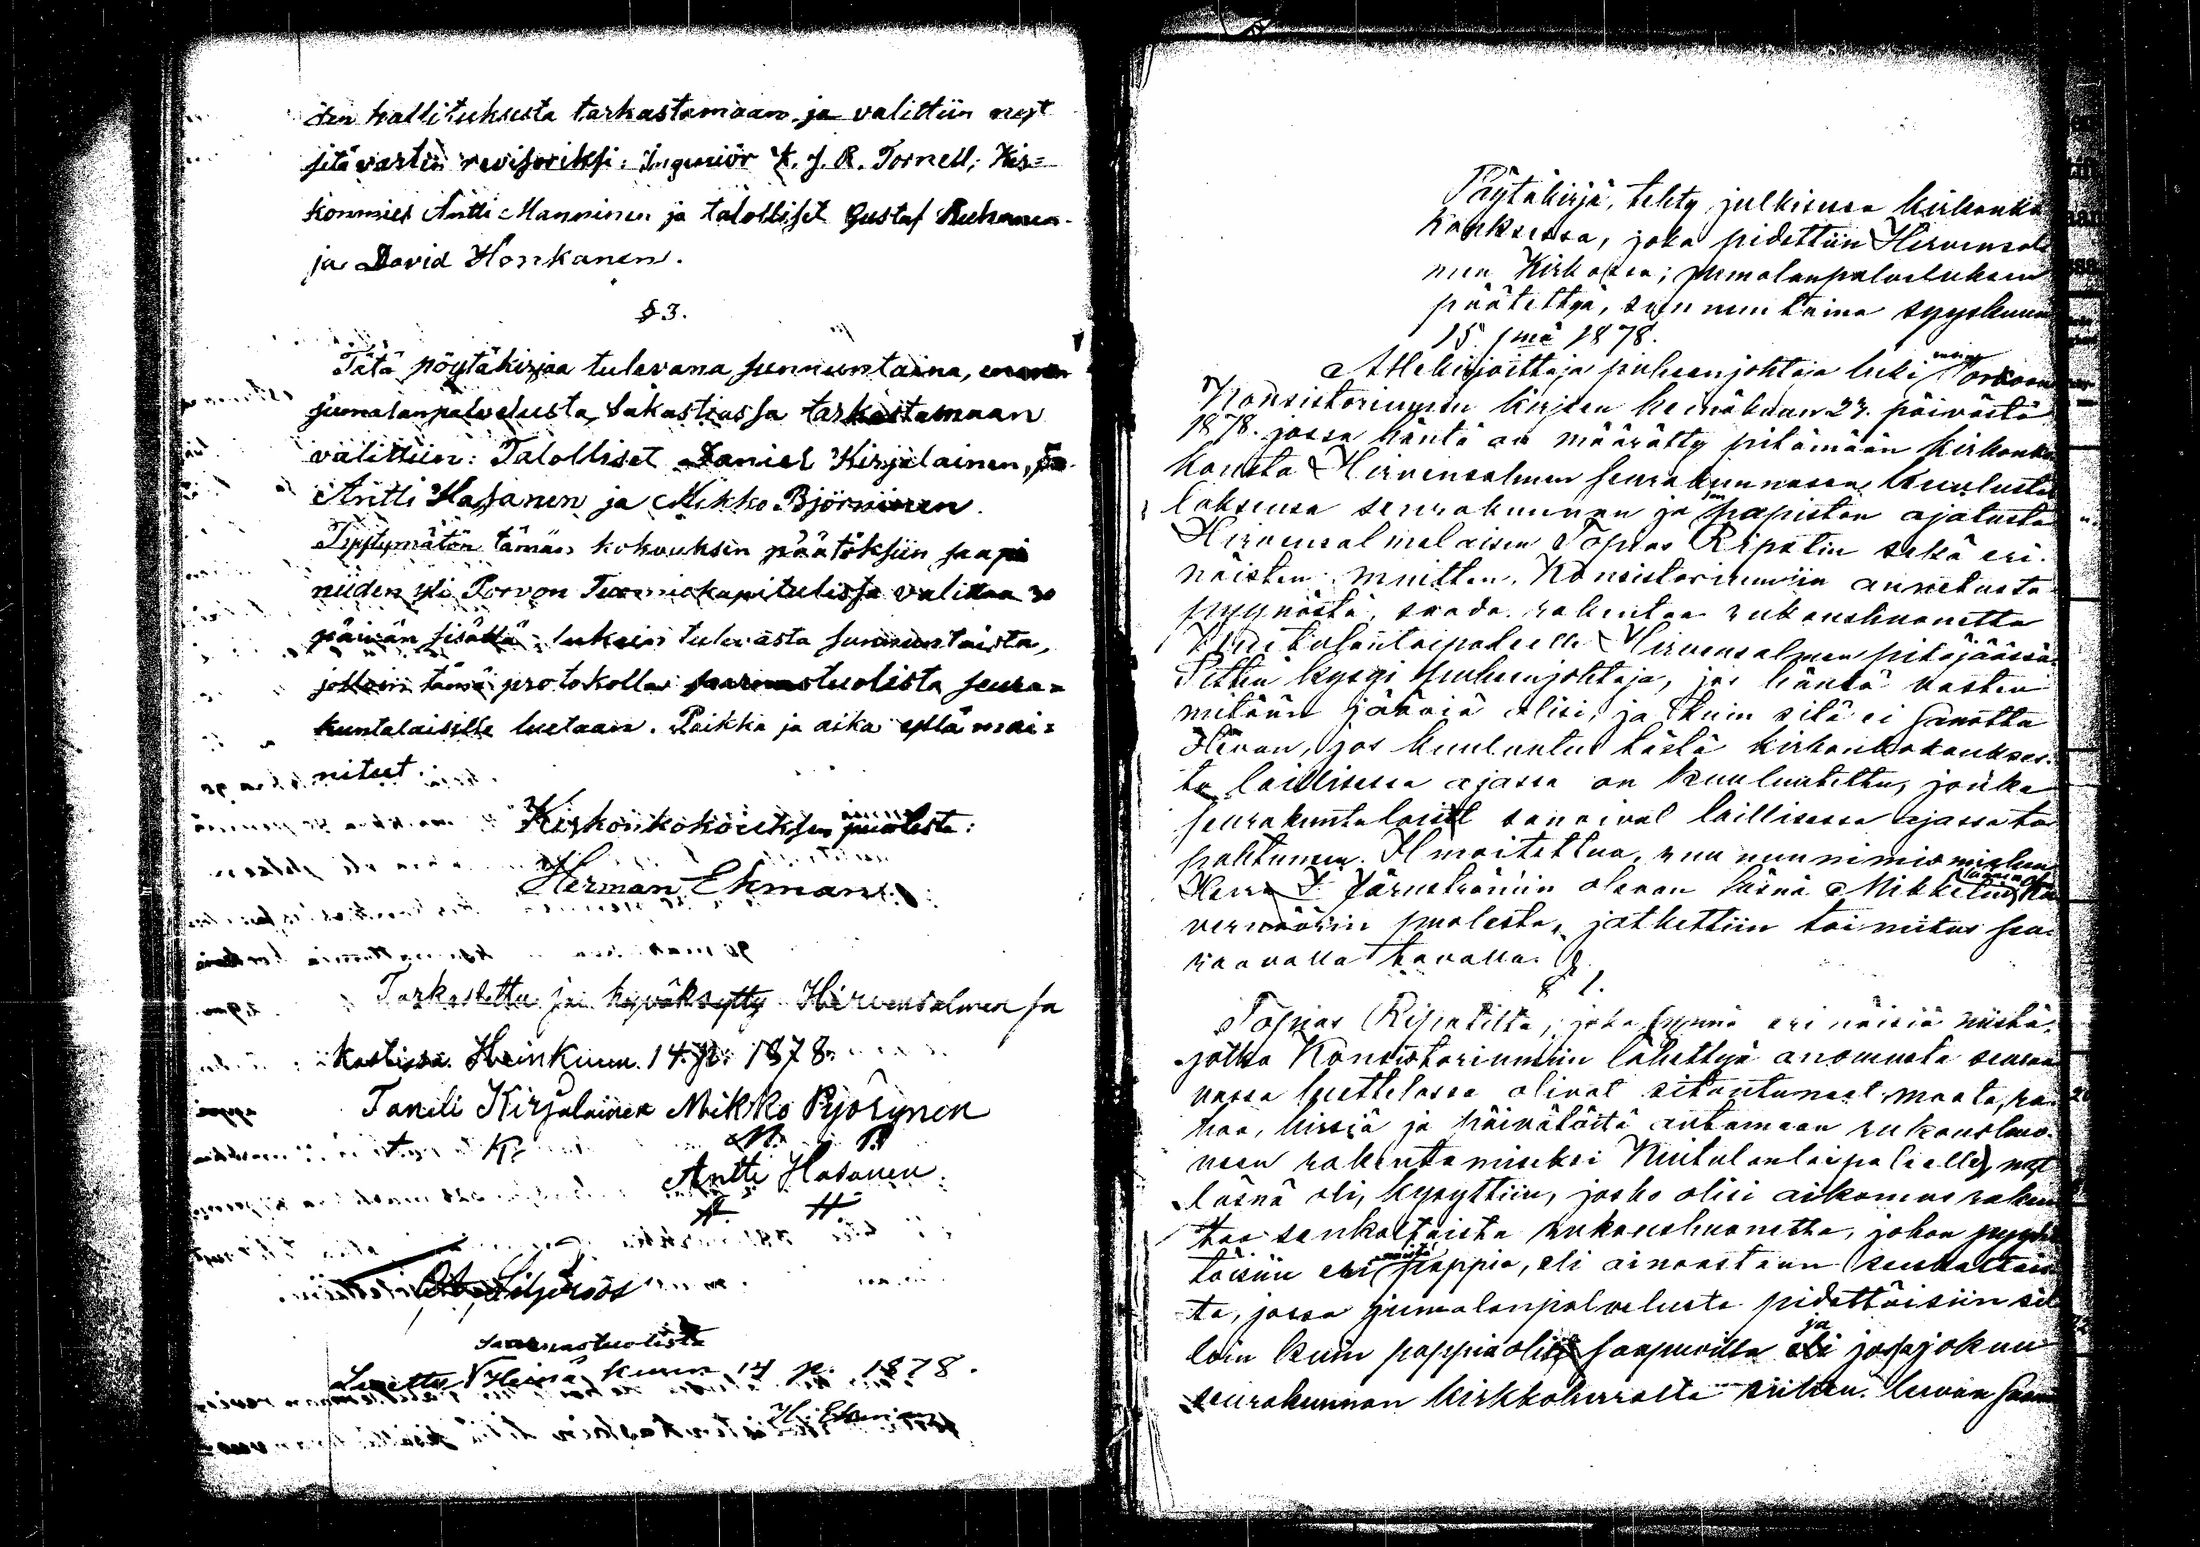 den hallituksesta tarkastamaan ja valittiin nyt
sitä varten revisoriksi: Ingeniör K. J. R. Tornell, Kir=
konmies Antti Manninen ja talolliset Gustaf Ruhanen
ja David Honkanen.
§ 3.
Tätä pöytäkirjaa tulevana sunnuntaina, ennen
jumalanpalvelusta, sakastissa tarkastamaan
valittiin: Talolliset Daniel Kirjalainen,
Antti Hasanen ja Mikko Björninen.
Tyytymätön tämän kokouksen päätöksiin saapi
niiden yli Porvon Tuomiokapitulissa valittaa 30
päivän sisällä, lukein tulevasta sunnuntaista,
jolloin tämä protokolla saarnastuolista seura=
kuntalaisille luetaan. Paikka ja aika yllä mai=
nitut.
Kirkonkokouksen puolesta:
Herman Ekman.
Tarkastettu ja hyväksytty Hirvensalmen sa
kastissa Heinkuun 14 p: 1878.
Taneli Kirjalainen Mikko Pjörynen
K. M. P.
Antti Hasanen
A. H
Siljeroos
saarnastuolista
Luettu Heinä kuun 14 p. 1878.
H. Ekman
Pöytäkirja, tehty julkisessa kirkonko
kouksessa, joka pidettiin Hirvensal
men Kirkossa; jumalanpalveluksen
päätettyä, sunnuntaina syyskuun
15 pnä 1878.
Allekirjoittaja puheenjohtaja luki Porvoon
Konsistoriumin kirjeen heinäkuun 23. päivästä
1878. jossa häntä on määrätty pitämään kirkonko
kousta Hirvensalmen seurakunnassa, kuulustel
laksensa seurakunnan ja sen papiston ajatusta
Hirvensalmelaisen Topias Ripatin sekä eri.
näisten muitten, Konsistoriumiin annetusta
pyynöstä, saada rakentaa rukoushuonetta
Kuitulantaipaleelle Hirvensalmen pitäjäässä.
Sitten kysyi puheenjohtaja, jos häntä vasten
mitään jääviä olisi, ja kuin sitä ei sanottu
olevan, jos kuulutus tästä kirkonkokoukses.
ta laillisessa ajassa on kuulutettu, jonka
seurakuntalaiset sanoivat laillisessa ajassa ta
pahtuneen. Ilmoitettua, ruununnimismiehen
Herra J. Järnströmin olevan läsnä Mikkelin läänin Ku
vernöörin puolesta, jatkettiin toimitus seu
raavalla tavalla.
§ 1.
Topias Ripatilta, joka ynnä erinäisiä niistä,
jotka Konsistoriumiin lähettyä anomusta seuraa
vassa luettelossa olivat sitountuneet maata, ra
haa, hirsiä ja päivätöitä antamaan rukoushuo
neen rakentamiseksi Kuitulantaipaleelle, nyt
läsnä oli, kysyttiin, josko olisi aikomus raken
taa senkaltaista rukoushuonetta, johon pyydet
täisiin eri pappia, eli ainoastaan senkaltais
ta, jossa jumalanpalvelusta pidettäisiin sil
loin kuin pappia olisi saapuvilla ja jos joku
seurakunnan kirkkoherralta siihen luvan saan